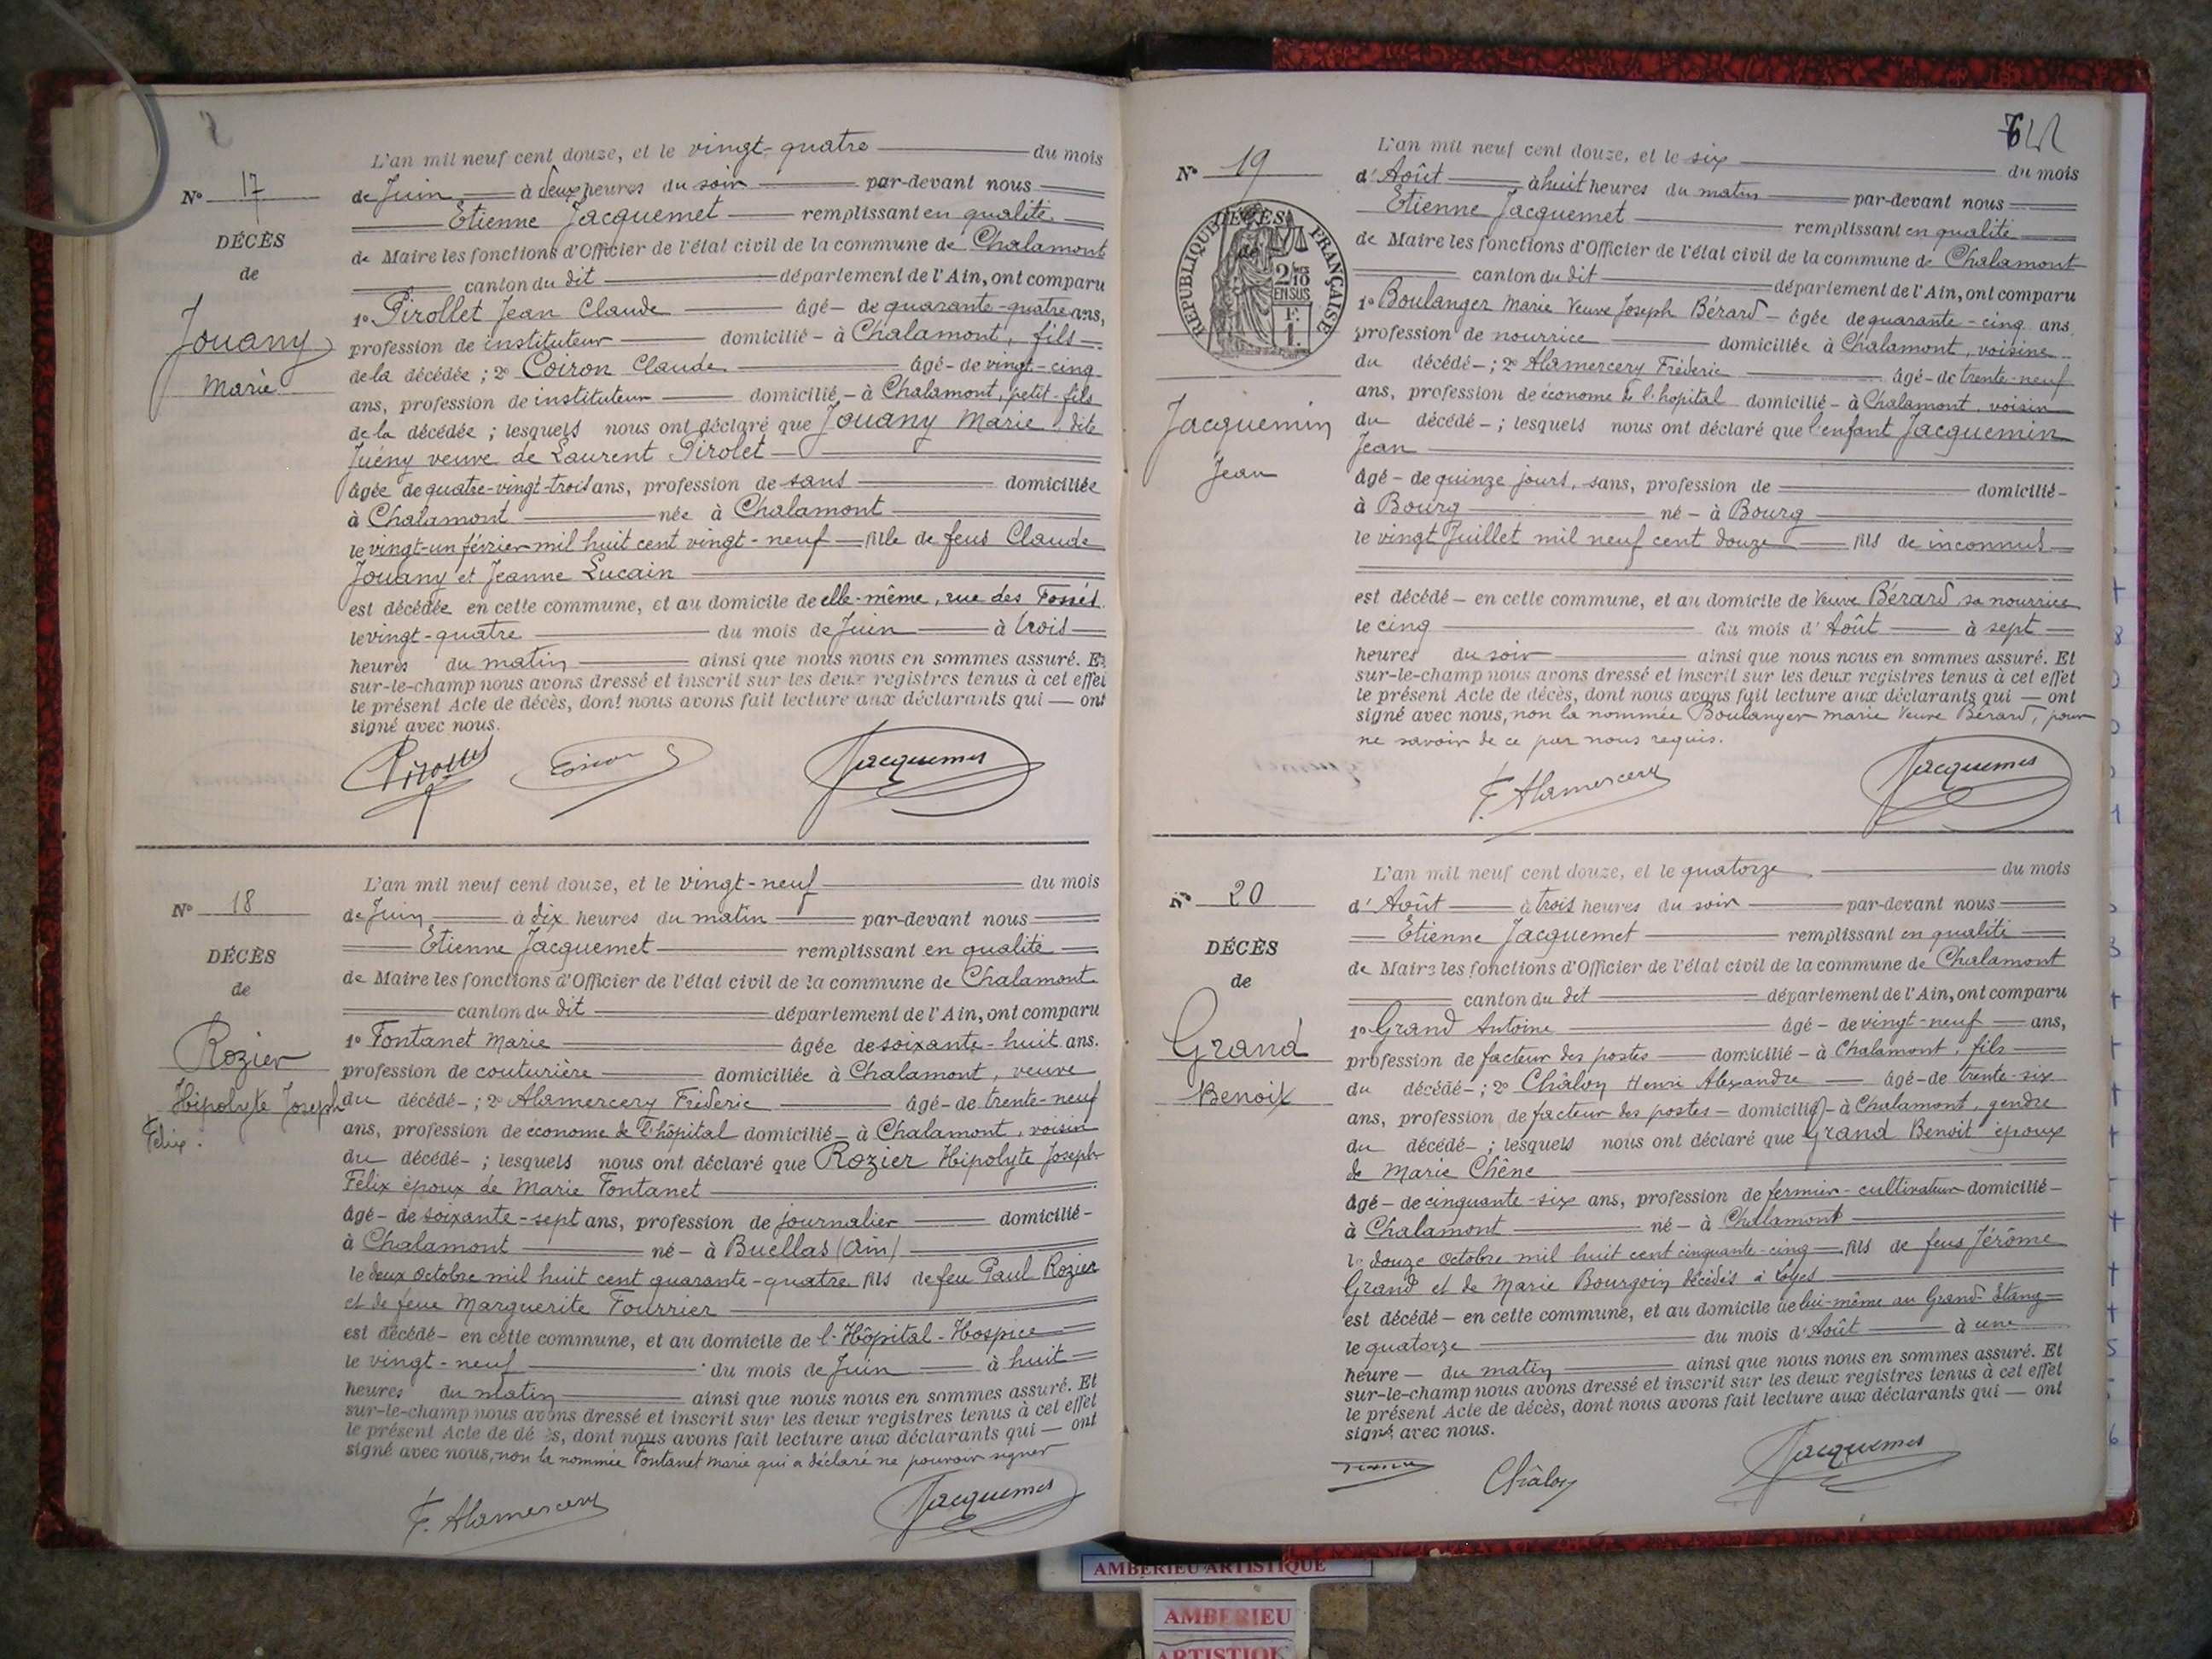 N° 17
DÉCÈS
de
Jouany
Marie
L'an mil neuf cent douze, et le vingt-quatre du mois
de Juin à deux heures du soir par-devant nous
Etienne Jacquemet remplissant en qualité
de Maire les fonctions d'Officier de l'état civil de la commune de Chalamont
canton du dit département de l'Ain, ont comparu
1° Pirollet Jean Claude âgé - de quarante-quatre ans,
profession de instituteur domicilié - à Chalamont, fils
de la décédée ; 2° Coiron Claude âgé - de vingt-cinq
ans, profession de instituteur domicilié - à Chalamont, petit-fils
de la décédée ; lesquels nous ont déclaré que Jouany Marie dite
Juény veuve de Laurent Pirolet
âgée de quatre-vingt-trois ans, profession de sans domiciliée
à Chalamont née à Chalamont
le vingt-un février mil huit cent vingt-neuf fille de feus Claude
Jouany et Jeanne Lucain
est décédée en cette commune, et au domicile de elle-même, rue des Fossés
le vingt-quatre du mois de Juin à trois
heures du matin ainsi que nous nous en sommes assuré. Et
sur-le-champ nous avons dressé et inscrit sur les deux registres tenus à cet effet
le présent Acte de décès, dont nous avons fait lecture aux déclarants qui — ont
signé avec nous.
Coiron Jacquemet
N° 18
DÉCÈS
de
Rozier
Hipolyte Joseph
Félix.
L'an mil neuf cent douze, et le vingt-neuf du mois
de Juin à dix heures du matin par-devant nous
Etienne Jacquemet remplissant en qualité
de Maire les fonctions d'Officier de l'état civil de la commune de Chalamont
canton du dit département de l'Ain, ont comparu
1° Fontanet Marie âgée de soixante-huit ans.
profession de couturière domiciliée à Chalamont, veuve
du décédé- ; 2° Alamercery Frédéric âgé - de trente-neuf
ans, profession de économe de l'hôpital domicilié - à Chalamont, voisin
du décédé- ; lesquels nous ont déclaré que Rozier Hipolyte Joseph
Félix époux de Marie Fontanet
âgé - de soixante-sept ans, profession de journalier domicilié -
à Chalamont né - à Buellas (Ain)
le deux octobre mil huit cent quarante-quatre fils de feu Paul Rozier
et de feue Marguerite Fourrier
est décédé - en cette commune, et au domicile de l'Hôpital-Hospice
le vingt-neuf du mois de Juin à huit
heures du matin ainsi que nous nous en sommes assuré. Et
sur-le-champ nous avons dressé et inscrit sur les deux registres tenus à cet effet
le présent Acte de dé ès, dont nous avons fait lecture aux déclarants qui — ont
signé avec nous, non la nommée Fontanet Marie qui a déclaré ne pouvoir signer
F. Alamercery Jacquemet
N° 19
RÉPUBLIQUE FRANÇAISE
DÉCÈS
de
2/10
EN SUS
Jacquemin
Jean
L'an mil neuf cent douze, et le six du mois
d'Août à huit heures du matin par-devant nous
Etienne Jacquemet remplissant en qualité
de Maire les fonctions d'Officier de l'état civil de la commune de Chalamont
canton du dit département de l'Ain, ont comparu
1° Boulanger Marie Veuve Joseph Bérard - âgée de quarante-cinq ans
profession de nourrice domiciliée à Chalamont, voisine
du décédé - ; 2° Alamercery Frédéric âgé - de trente-neuf
ans, profession de économe de l'hopital domicilié - à Chalamont, voisin
du décédé - ; lesquels nous ont déclaré que l'enfant Jacquemin
Jean
âgé - de quinze jours, sans, profession de domicilié -
à Bourg né - à Bourg
le vingt Juillet mil neuf cent douze fils de inconnus
est décédé - en cette commune, et au domicile de Veuve Bérard sa nourrice
le cinq du mois d'Août à sept
heures du soir ainsi que nous nous en sommes assuré. Et
sur-le-champ nous avons dressé et inscrit sur les deux registres tenus à cet effet
le présent Acte de décès, dont nous avons fait lecture aux déclarants qui — ont
signé avec nous, non la nommée Boulanger Marie Veuve Bérard, pour
ne savoir de ce par nous requis.
F. Alamercery Jacquemet
N° 20
DÉCÈS
de
Grand
Benoit
L'an mil neuf cent douze, et le quatorze du mois
d'Août à trois heures du soir par-devant nous
Etienne Jacquemet remplissant en qualité
de Maire les fonctions d'Officier de l'état civil de la commune de Chalamont
canton du dit département de l'Ain, ont comparu
1° Grand Antoine âgé - de vingt-neuf ans,
profession de facteur des postes domicilié - à Chalamont, fils
du décédé- ; 2° Châlon Henri Alexandre âgé - de trente-six
ans, profession de facteur des postes - domicilié - à Chalamont, gendre
du décédé- ; lesquels nous ont déclaré que Grand Benoit époux
de Marie Chêne
âgé - de cinquante-six ans, profession de fermier-cultivateur domicilié -
à Chalamont né - à Chalamont
le douze octobre mil huit cent cinquante-cinq fils de feus Jérôme
Grand et de Marie Bourgoin décédés à Loyes
est décédé - en cette commune, et au domicile de lui-même au Grand-Etang
le quatorze du mois d'Août à une
heure - du matin ainsi que nous nous en sommes assuré. Et
sur-le-champ nous avons dressé et inscrit sur les deux registres tenus à cet effet
le présent Acte de décès, dont nous avons fait lecture aux déclarants qui — ont
signé avec nous.
Châlon Jacquemet
AMBERIEU ARTISTIQUE
AMBERIEU